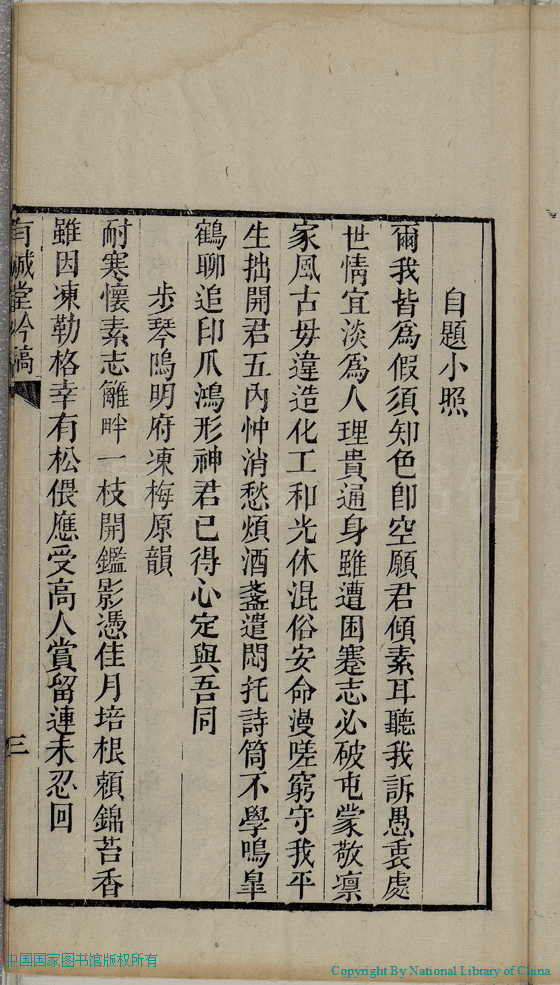 自題小照
爾我皆爲假須知色卽空願君傾素耳聽我訴愚衷處
世情宜淡爲人理貴通身雖遭困蹇志必破屯蒙敬凛
家風古毋違造化工和光休混俗安命漫嗟窮守我平
生拙開君五內忡消愁煩酒盞遣悶托詩筒不學鳴臯
鶴聊追印爪鴻形神君已得心定與吾同
步琴鳴明府凍梅原韻
耐寒懷素志籬畔一枝開鑑影憑佳月培根賴錦苔香
雖因凍勒格幸有松偎應受高人賞留連未忍回
有誠堂吟稿
三
中国国家图书馆版权所有
Copyright By National Library of China